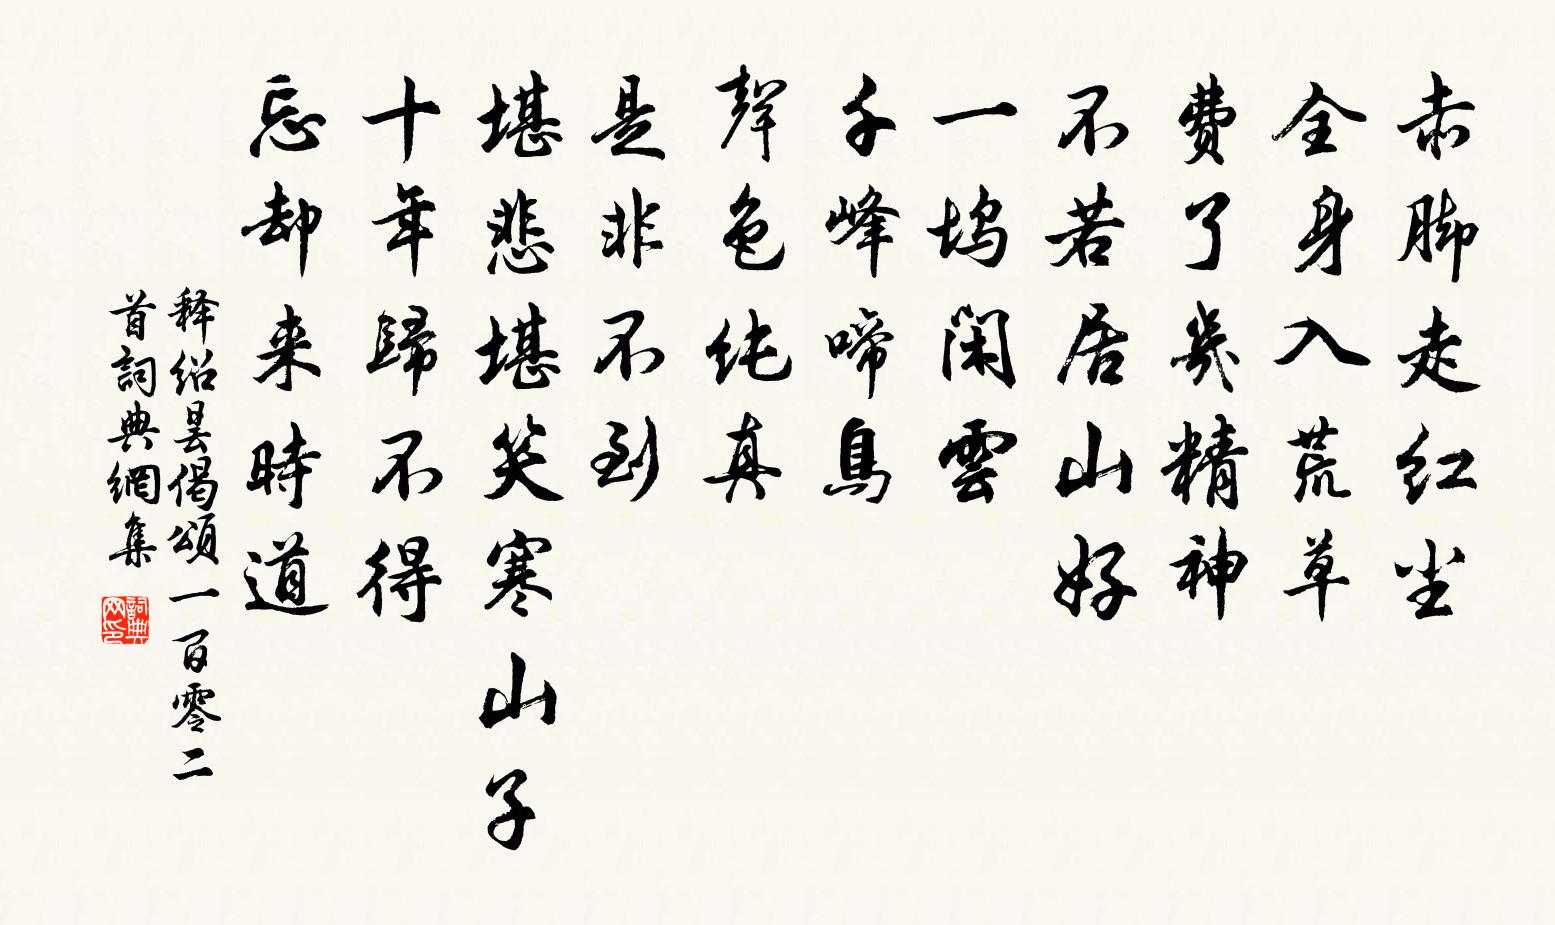 赤脚走红尘
全身入荒草
费了几精神
不若居山好
一坞闲雲
千峰啼鳥
聲色纯真
是非不到
堪悲堪笑寒山子
十年歸不得
忘却来時道
释绍昙偈頌一百零二
首詞典網集
詞典
网印